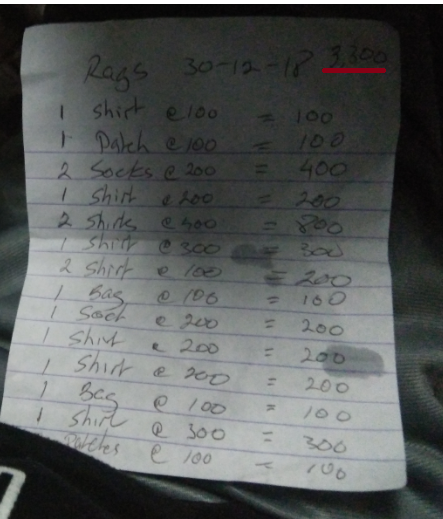 Rags 30-12-18 3,300
1 Shirt @ 100 = 100
1 Patch @ 100 = 100
2 Socks @ 200 = 400
1 Shirt @ 200 = 200
2 Shirts @ 400 = 800
1 Shirt @ 300 = 300
2 Shirt @ 100 = 200
1 Bag @ 100 = 100
1 Sock @ 200 = 200
1 Shirt @ 200 = 200
1 Shirt @ 200 = 200
1 Bag @ 100 = 100
1 Shirt @ 300 = 300
Patches @ 100 = 100